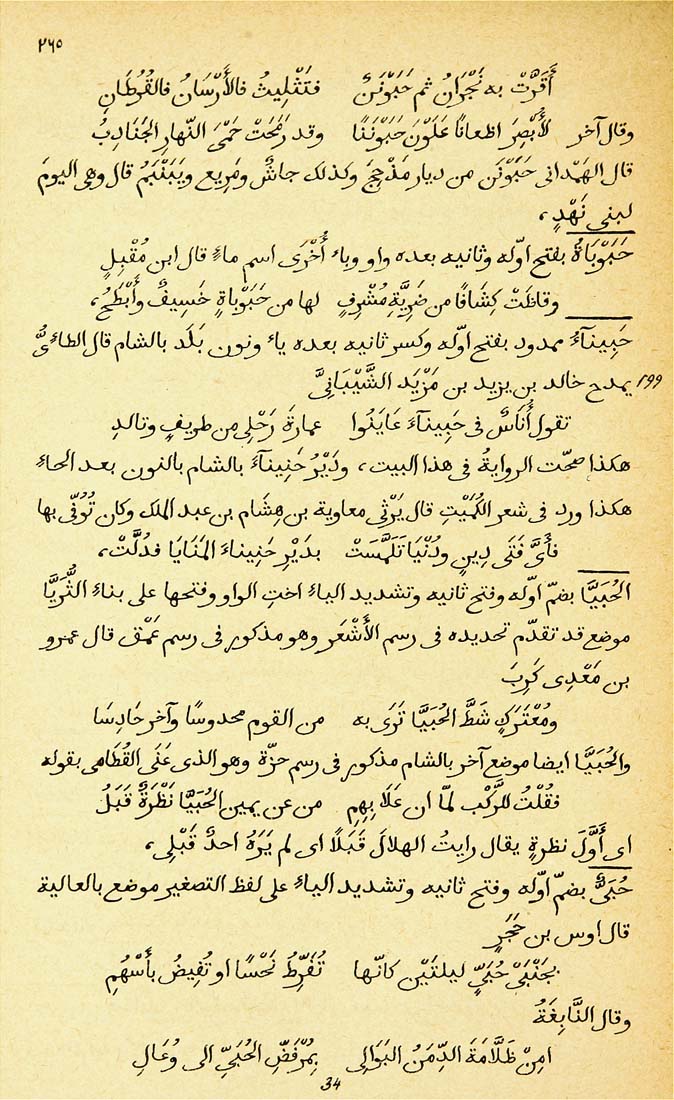 ٢٦٥
أَقَرَّتْ به نَجْرَانُ ثم حَبَوْنَنٌ فتَثْلِيثُ فالأَرْسَانُ فالقُرُطَانِ
وقال آخر لأُبْصِرَ اظعانًا عَلَوْنَ حَبَوْنَنًا وقد رَمَحَتْ حَمْىَ النّهارِ الجَنَادِبُ
قال الهَمْدانى حَبَوْنَن من ديار مَذْحِجَ وكذلك جاشٌ ومَرِيع ويَبَنْبَمُ قال وهى اليومَ
لبنى نَهْدٍ،
حَبَوْبَاةُ بفتح اوّله وثانيه بعده واو وباء أُخْرَى اسم ماءٍ قال ابن مُقْبِلٍ
وقاظَتْ كِشَافًا من ضَرِيَّةِ مُشْرِفٍ لها من حَبَوْباةٍ خَسِيفٌ وأَبْطَحُ،
حَبِينَآءُ ممدود بفتح اوّله وكسر ثانيه بعده ياء ونون بَلَد بالشام قال الطاءىُّ
١٩٩ يمدح خالد بن يزيد بن مَزْيَد الشَّيْبَانِىَّ
تقول أُنَاسٌ فى حَبِينآءَ عَايَنُوا عمارةَ رَحْلِى من طريفٍ وتالدِ
هكذا صحّت الروايةُ فى هذا البيت، ودَيْرُ حَنِينآءَ بالشام بالنون بعد الحاءِ
هكذا ورد فى شعر الكُمَيْتِ قال يَرْثِى معاوية بن هِشَام بن عبد الملك وكان تُوُفِّىَ بها
فأَىَّ فَتَى دِينٍ ودُنْيَا تَلَمَّسَتْ بدَيْرِ حَنِيناءَ المَنَايَا فدُلَّتْ،
الحُبَيَّا بضمّ اوّله وفتح ثانيه وتشديد الياء اختِ الواو وفتحها على بناء الثُّرَيَّا
موضع قد تقدّم تحديده فى رسم الأَشْعَر وهو مذكور فى رسم عَمْق قال عمرو
بن مَعْدِى كَرِبَ
ومُعْتَرَكٍ شَطَّ الحُبَيَّا تَرَى به من القوم محدوسًا وآخر حَادِسَا
والحُبَيَّا ايضا موضع آخر بالشام مذكور فى رسم حزّة وهو الذى عَنَى القُطَامى بقوله
فقُلْتُ للرَّكْبِ لمّا ان عَلَا بِهِمِ من عن يمين الحُبَيَّا نَظْرَةٌ قَبَلُ
اى أَوَّلَ نظرةٍ يقال رايتُ الهلالَ قَبَلًا اى لم يَرَهُ احدٌ قَبْلِى،
حُبَىٌّ بضمّ اوّله وفتح ثانيه وتشديد الياء على لفظ التصغير موضع بالعالية
قال اوس بن حَجَرٍ
بجَنْبَىْ حُبَىٍّ ليلتَيْن كانّها تُفَرِّطُ نَحْسًا او تُفِيضُ بأَسْهُمِ
وقال النَّابِغَةُ
امِنْ ظَلَّامَةَ الدِّمَنُ البَوَالِى بمُرْفَضِّ الحُبَىِّ الى وُعَالِ
34